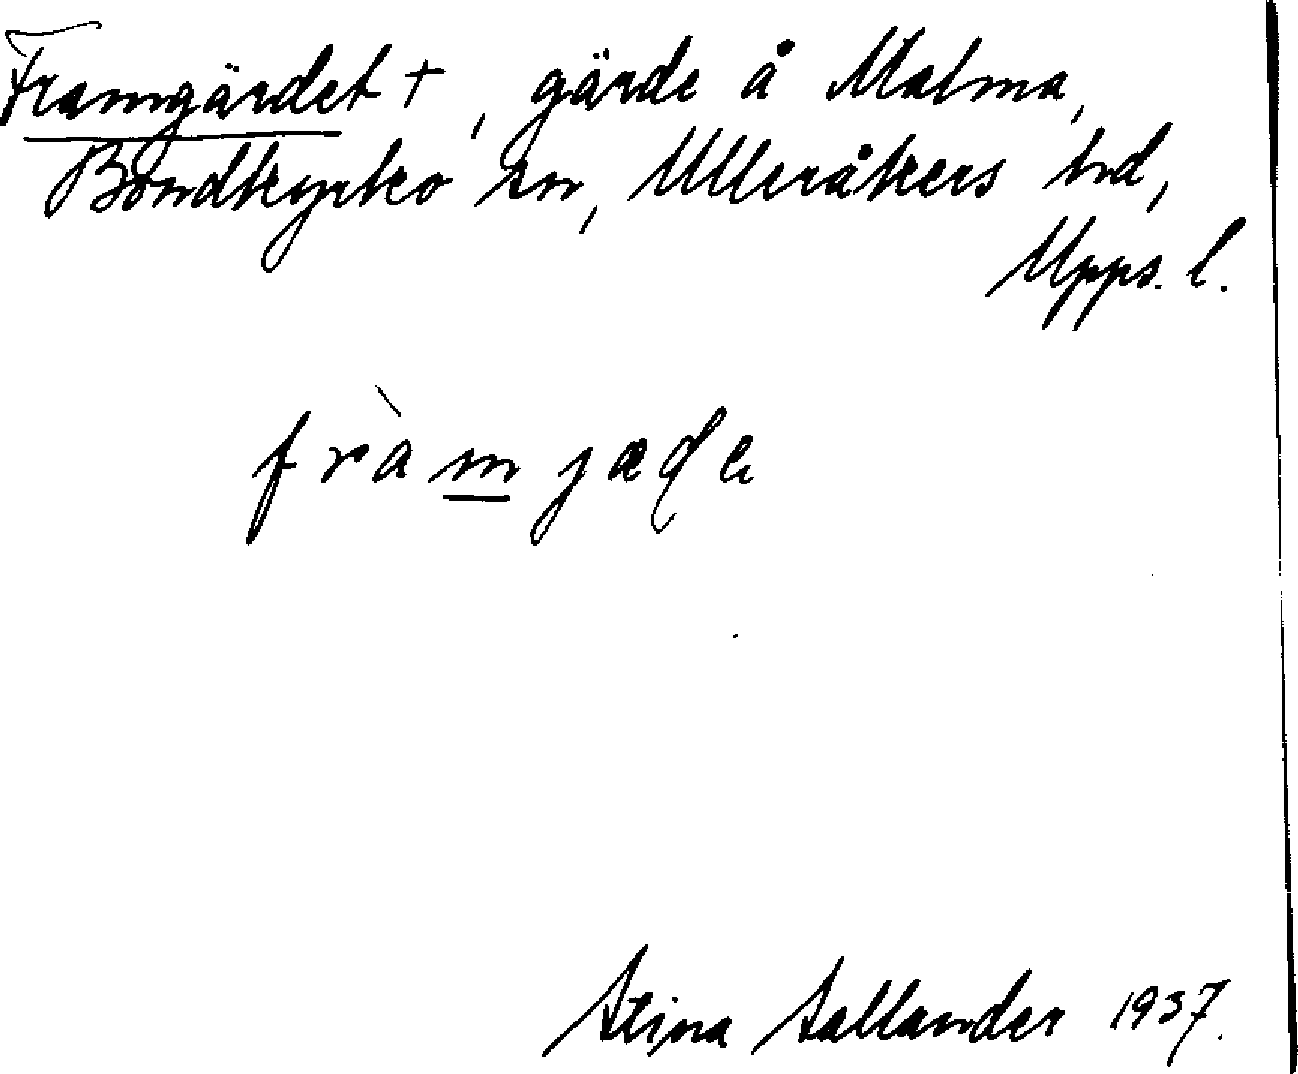 Framgärdet +, gärde å Malma,
Bondkyrko sn, Ulleråkers hd,
Upps. l.
fràmjæɖe
Stina Sallander 1937.